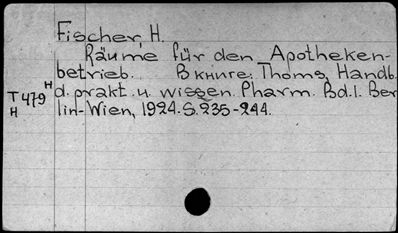 Fischer, H.
Räume für den Apotheken-
betrieb. В книге: Thoms, Handb.
d. prakt. u. wissen. Pharm. Bd.1. Ber
lin-Wien, 1924. S. 235-244.
T 479 H
H